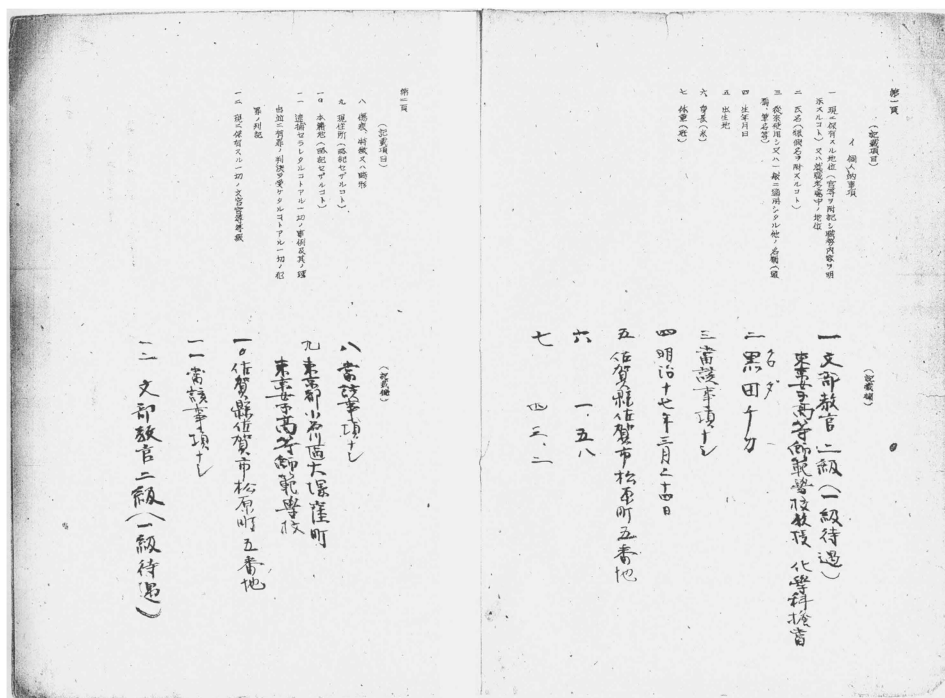 第一頁
(記載項目)
イ 個人的事項
一 現ニ保有スル地位(官等ヲ附記シ職務内容ヲ明
示スルコト)又ハ就職考慮中ノ地位
二 氏名(振假名ヲ附スルコト)
三 從來使用シ又ハ一般ニ通用シタル他ノ名稱(
號、筆名等)
四 生年月日
五 出生地
六 身長(米)
七 体重(瓩)
(記載欄)
一 文部教官 二級(一級待遇)
東京女子高等師範學校教授 化學科擔當
クロ ダ
二 黒田チカ
三 當該事項ナシ
四 明治十七年三月二十四日
五 佐賀縣佐賀市松原町五番地
六 一.五八
七 四三.二
第二頁
(記載項目)
八 傷痕、特徴又ハ畸形
九 現住所(略記セザルコト)
一〇 本籍地(略記セザルコト)
一一 逮捕セラレタルコトアル一切ノ事例及其ノ理
由竝ニ有罪ノ判決ヲ受ケタルコトアル一切ノ犯
罪ノ列記
一二 現ニ保有スル一切ノ文官官等等級
(記載欄)
八 當該事項ナシ
九 東京都小石川區大塚窪町
東京女子高等師範學校
一〇 佐賀縣佐賀市松原町五番地
一一 當該事項ナシ
一二 文部教官二級(一級待遇)